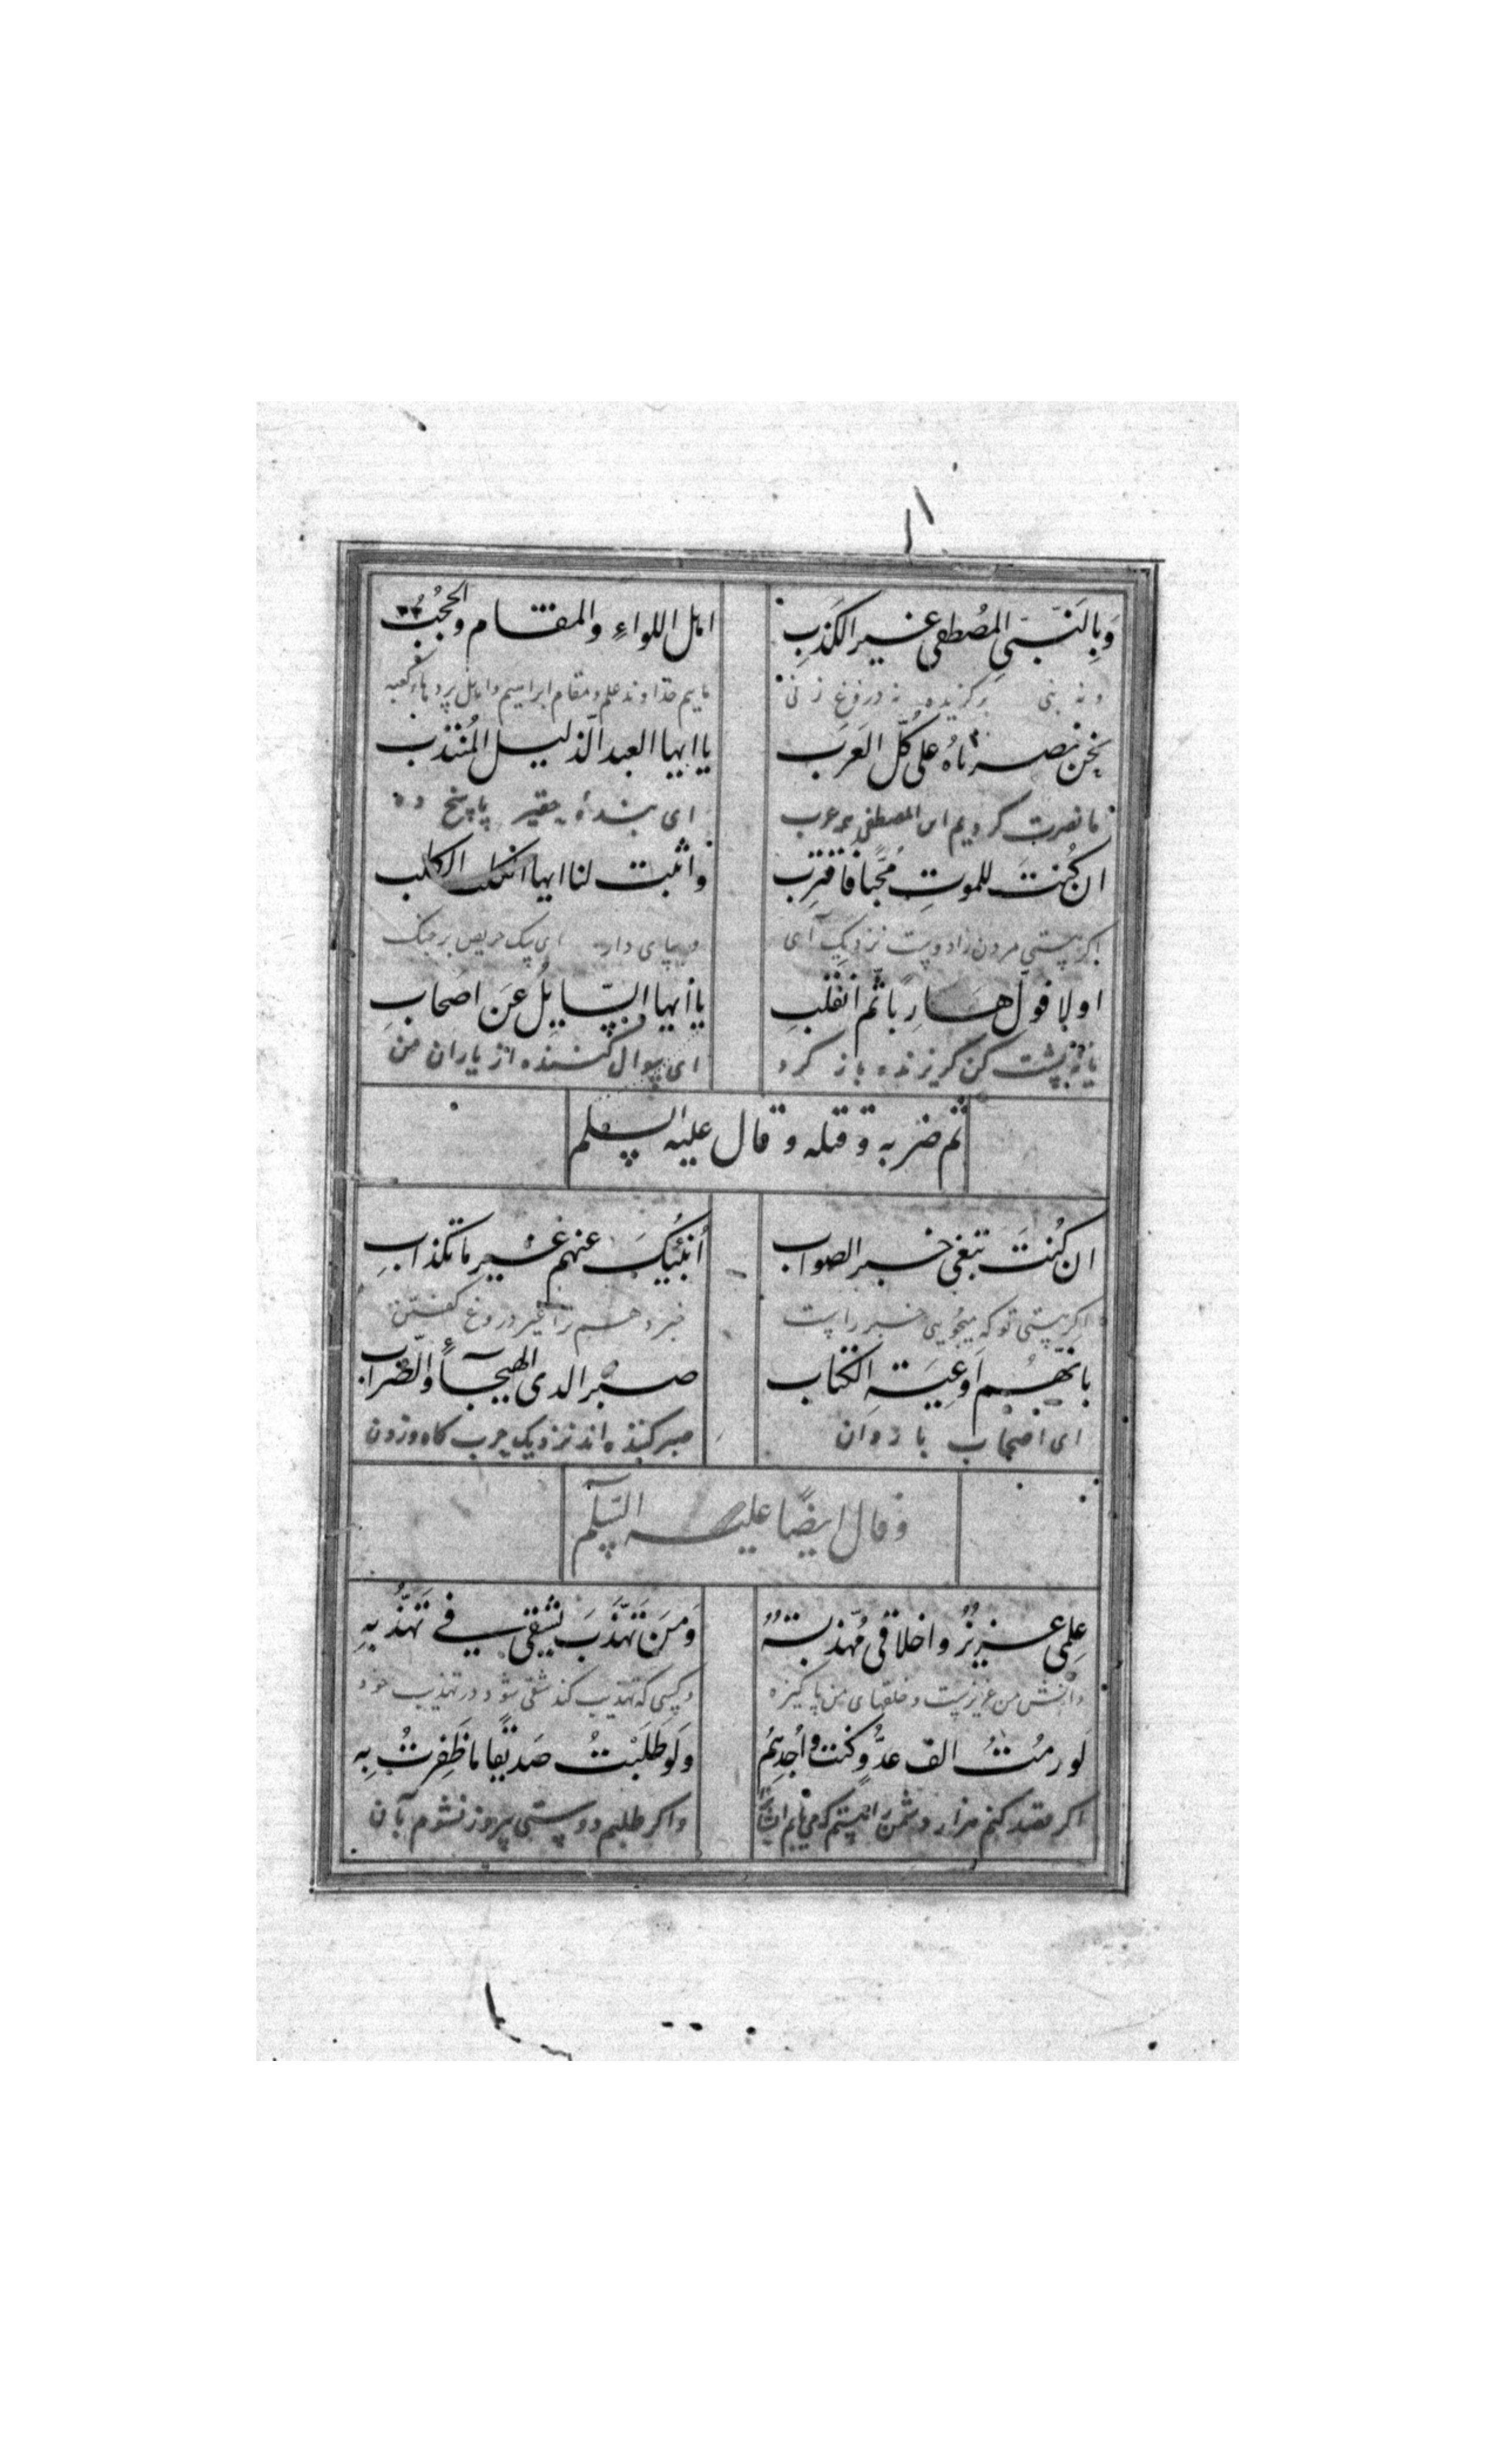 وَبِالنَّبیِ المُصطفی غیر الکَذِبِ اهل اللواءِ والمقام والحُجُبُ
و نه بنی برگزیده نه دروغ زنی مایم خداوند علم و مقام ابراهیم و اهل پردهاء کعبه
نحن نصرناهُ علی کُلّ العَرَب یا ایها العبد الذلیل المُنتذب
ما نصرت کردیم این المصطفی بر عرب ای بندهٔ حقیر پاسخ ده
ان کُنتَ للموتِ مُحّبًا فاقترِب واثبت لنا ایها الکلب الکلب
اکر هستی مردن را دوست نزدیک آی و بپای دار ای سک حریص برجنک
اولا فولّ هارِبًا ثم انقلبِ یا ایها السّایلُ عَن اصحابِ
یا نه پشت کن کریزنده باز کرد ای سوال کننده از یاران من
ثم ضربه و قتله و قال علیه السلم
ان کُنتَ تبغی خبر الصواب اُنبُئیکَ عنهم غیر ما تکذابِ
اکر هستی تو که میجویی خبر راست خبر دهم ترا غیر دروغ کفتن
بانّهُم اَوعِیَتهِ الکتاب صبر الدی الهیجآءً والضراب
ای اصحاب بازوان صبر کننده اند نزدیک حرب کاه وزدن
وقال ایضًا علیه السّلم
عِلمی عزیزٌ و اخلاقی مُهذبتهٌ وَمَن تَهّذَبَ یشقی فی تَهّذُبِهِ
دانش من عزیزست و خلقهای من پاکیزه و کسی که تهذیب کند شقی شود در تهذیب خود
لو رمُتُ الف عدُّوٍ کنت واُجدِهُم ولَو طَلَبتُ صَدیقًا ما ظَفِرتُ بِه
اکر قصد کنم هزار دشمن را هستم که می یابم ایشانرا و اکر طلبم دوستی پیروز نشوم بآن